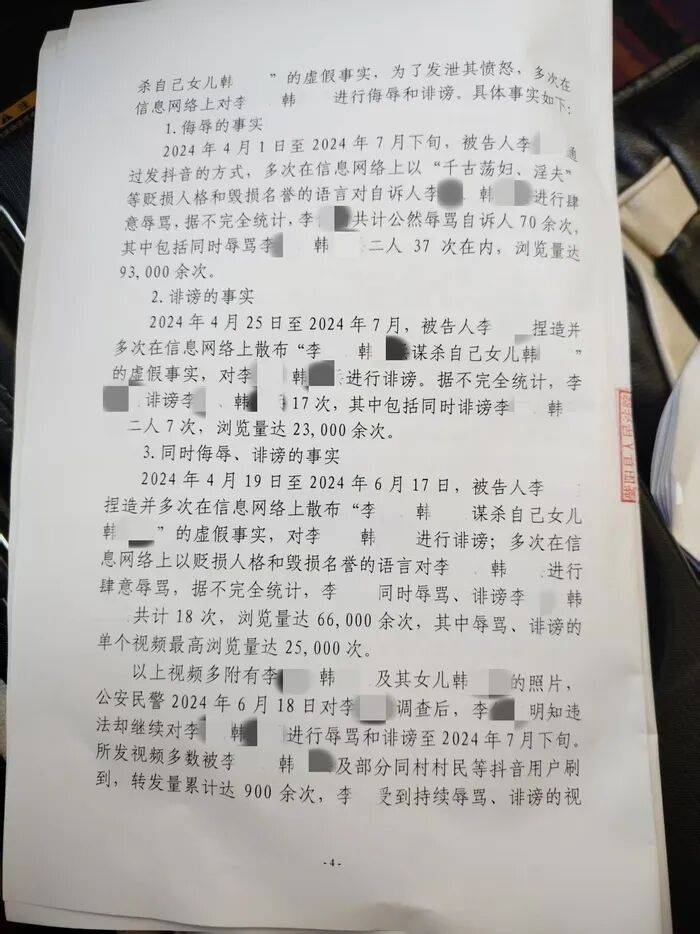 杀自己女儿韩 ”的虚假事实，为了发泄其愤怒，多次在
信息网络上对李 韩 进行侮辱和诽谤。具体事实如下：
1.侮辱的事实
2024年4月1日至2024年7月下旬，被告人李 通
过发抖音的方式，多次在信息网络上以“千古荡妇、淫夫”
等贬损人格和毁损名誉的语言对自诉人李 、韩 进行肆
意辱骂，据不完全统计，李 共计公然辱骂自诉人70余次，
其中包括同时辱骂李 韩 二人37次在内，浏览量达
93,000余次。
2.诽谤的事实
2024年4月25日至2024年7月，被告人李 捏造并
多次在信息网络上散布“李 韩 谋杀自己女儿韩 ”
的虚假事实，对李 韩 进行诽谤。据不完全统计，李
诽谤李 、韩 17次，其中包括同时诽谤李 韩
二人7次，浏览量达23,000余次。
3.同时侮辱、诽谤的事实
2024年4月19日至2024年6月17日，被告人李
捏造并多次在信息网络上散布“李 韩 谋杀自己女儿
韩 ”的虚假事实，对李 韩 进行诽谤；多次在信
息网络上以贬损人格和毁损名誉的语言对李 、韩 进行
肆意辱骂，据不完全统计，李 同时辱骂、诽谤李 韩
共计18次，浏览量达66,000余次，其中辱骂、诽谤的
单个视频最高浏览量达25,000次。
以上视频多附有李 韩 及其女儿韩 的照片，
公安民警2024年6月18日对李 调查后，李 明知违
法却继续对李 韩 进行辱骂和诽谤至2024年7月下旬。
所发视频多数被李 、韩 及部分同村村民等抖音用户刷
到，转发量累计达900余次，李 受到持续辱骂、诽谤的视
-4-